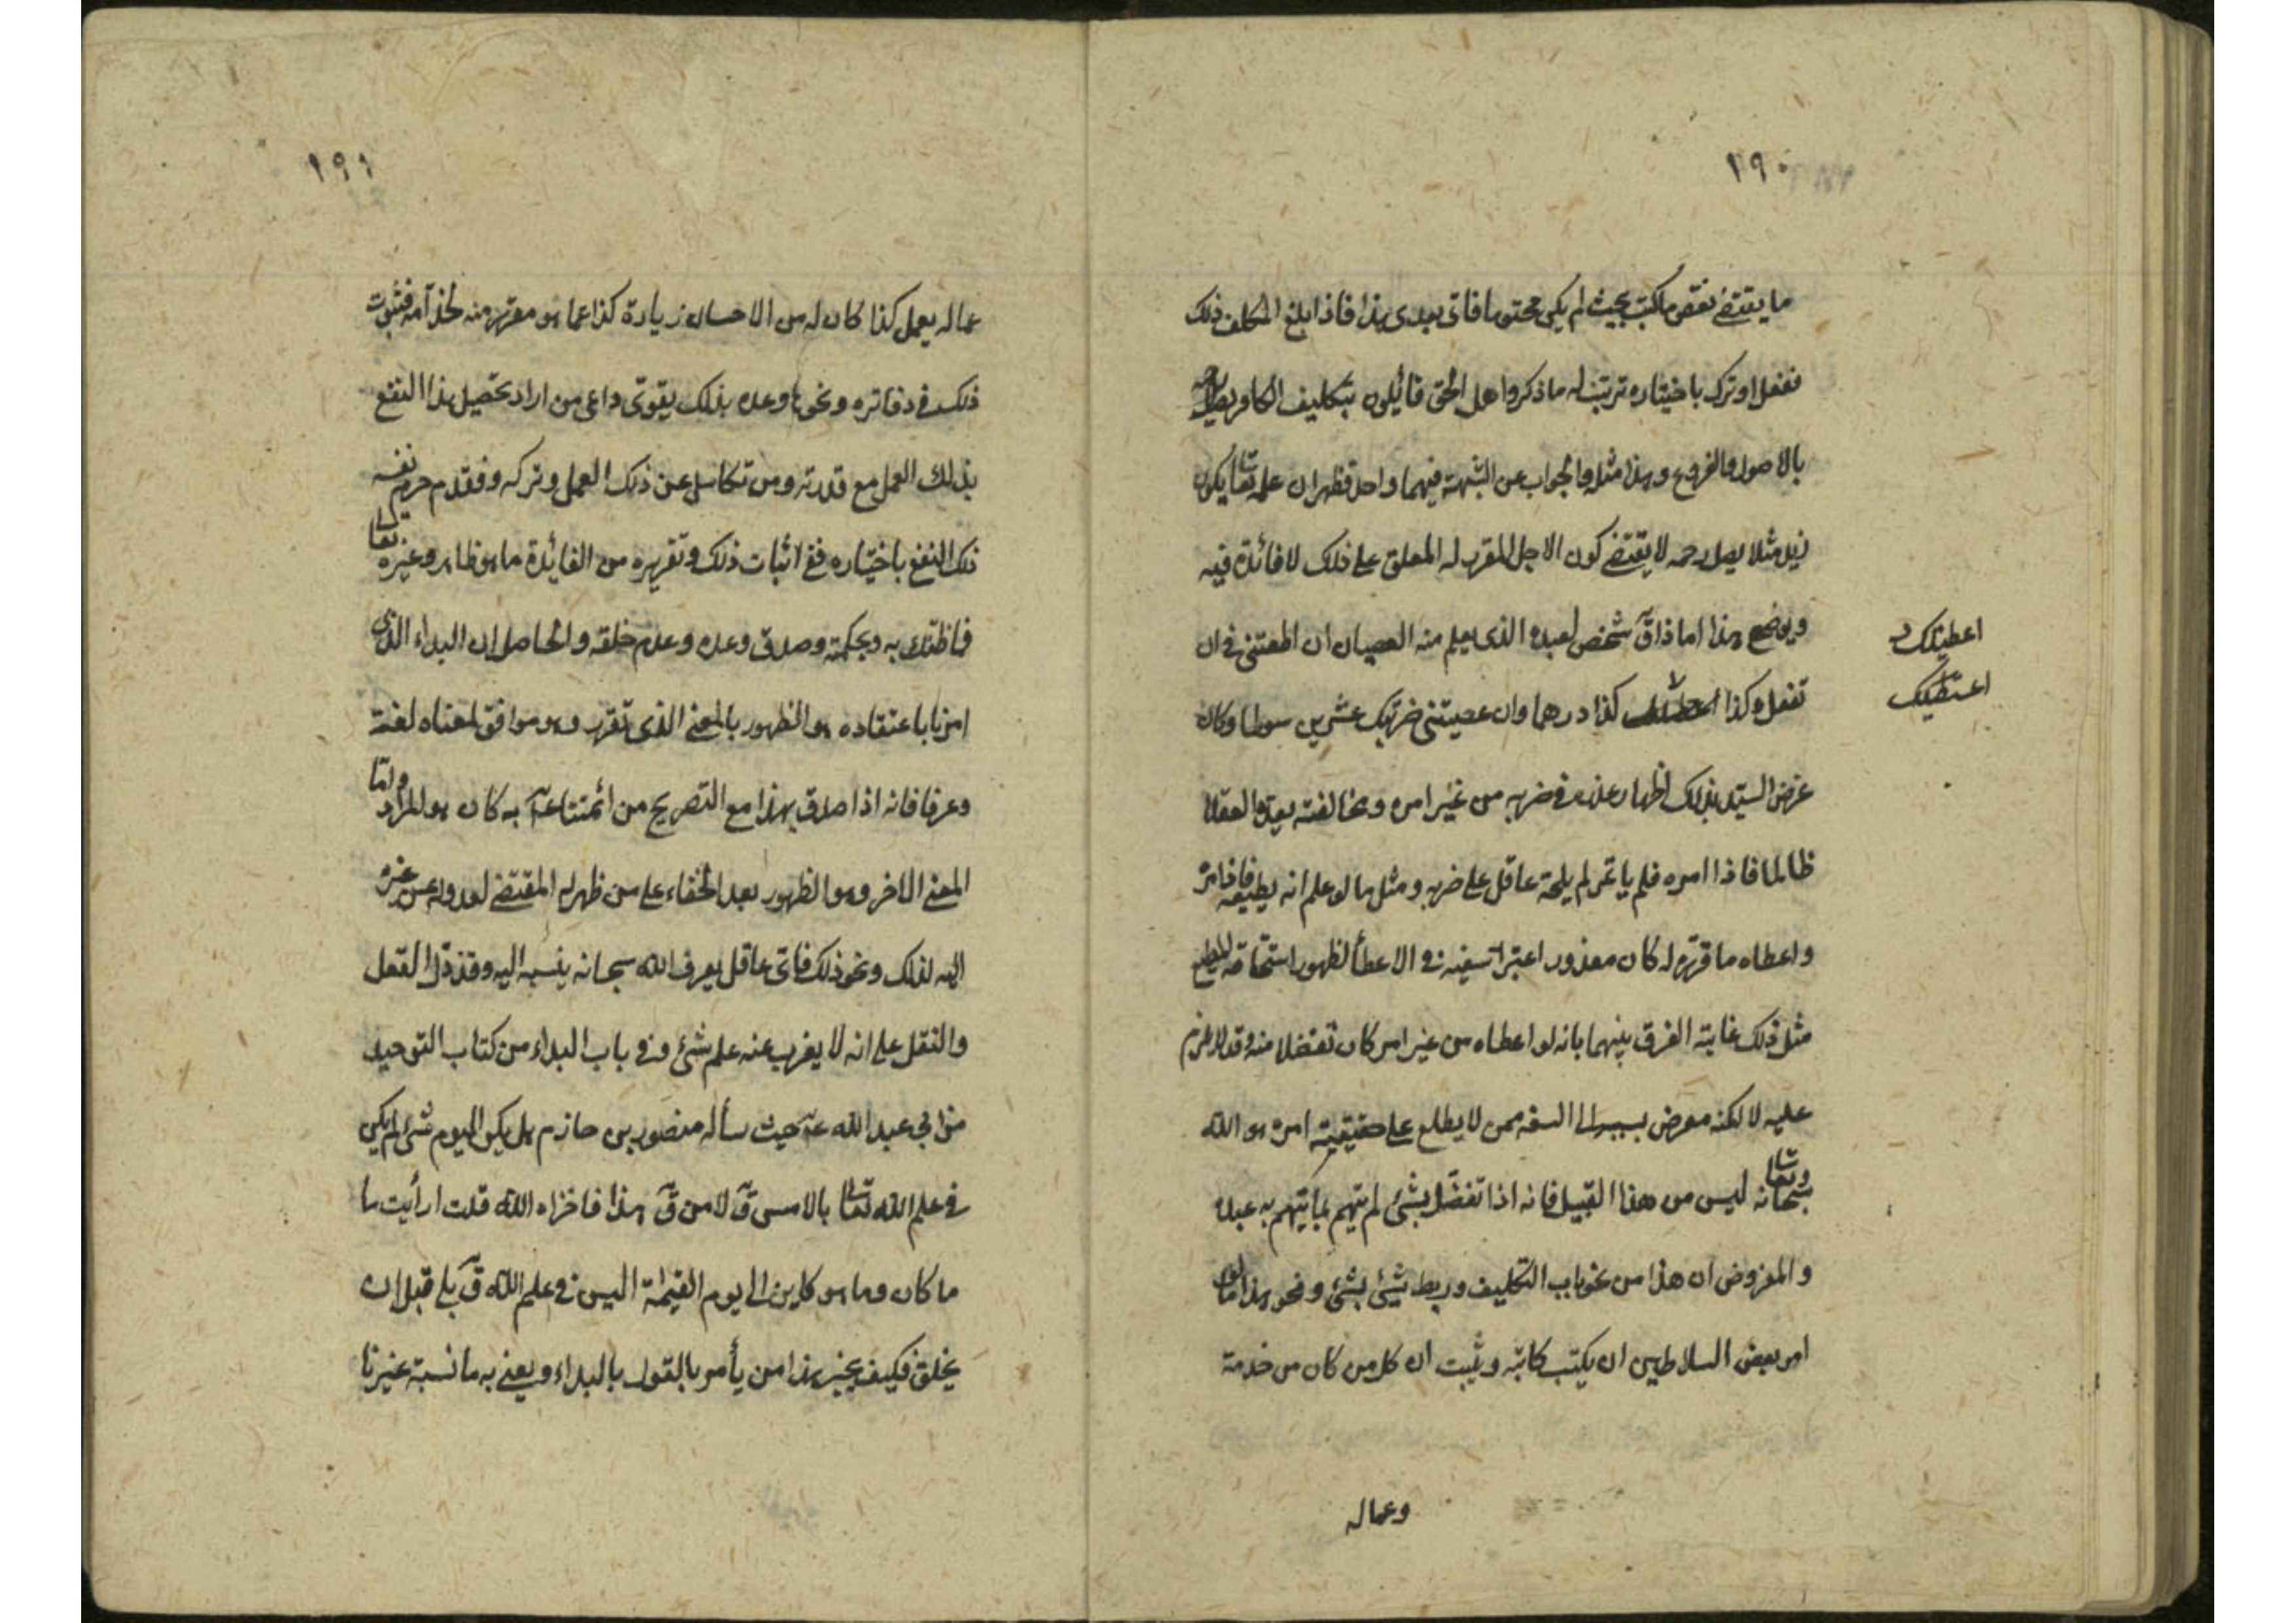 ١٩٠
ما يقتضى نقص ما كتب بحيث لم يكن محتوما فاتى بعدى هذا فاذا بلغ المكلف ذلك
ففعل او ترك باختياره ترتب له ما ذكروا هل الحق قائلون بتكليف الكافر
بالاصول والفروع وهذا مثله والجواب عن الشبهة فيهما واحد فظهر ان علمه تعالى يكون
زيد مثلا يصل رحمه لا يقتضى كون الاجل المقرر له المعلق على ذلك لا فائدة فيه
ويوضح هذا اما ذا قٓ شخص لعبده الذى يعلم منه العصيان ان اطعتنى فى ان
تفعل وكذا كذا درهما وان عصيتنى ضربتك عشرين سوطا وكان
اعطيتك
اعتقتك
غرض السيد بذلك اظهار عذره فى ضربه من غير امره ومخالفته يعده العقلا
ظالما فاذا امره فلم ياتمر لم يلحه عاقل على ضربه ومثل ما لو علم انه يطيعه فاذا امره
واعطاه ما قرره له كان معذور اعتبر السفيه فى الاعطأ لظهور استحقاقه
مثل ذلك غاية الفرق بينهما بانه لو اعطاه من غير امر كان تفضلا منه وقد لا يلزم
عليه لا لكنه معرض بسبب السفه ممن لا يطلع على حقيقية امره هو الله
سبحانه وتعالى ليس من هذا القبيل فانه اذا تفضل بشئ لم يتهم بما يتهم به عبده
والمفروض ان هذا من نحو باب التكليف وربط شيئ بشئ ونحو هذا ما لو
امر بعض السلاطين ان يكتب كاتبه ويثبت ان كل من كان من خدمة
وعماله
١٩١
عماله يعمل كذا كان له من الاحسان زيادة كذا عما هو مقرر منه لخذآمه فثبوت
ذلك فى دفاتره ونحوها وعده بذلك يقوى داعى من اراد تحصيل هذا النفع
بذلك العمل مع قدرته ومن تكاسل عن ذلك العمل وتركه وفقدم حرم نفسه
ذلك النفع باختياره ففى اثبات ذلك وتقريره من الفائدة ما هو ظاهر وغيره تعالى
فاظنك به وبحكمته وصدق وعده وعدم خلفه والحاصل ان البداء الذى
امرنا باعتقاده هو الظهور بالمعنى الذى تقرر وهو موافق لمعناه لغة
وعرفا فانه اذا صدق بهذا مع التصريح من ائمتنا عٓ به كان هو المراد واما
المعنى الاخر وهو الظهور بعد الخفاء على من ظهر له المقتضى لعدوله عن غيره
اليه لذلك ونحو ذلك فاى عاقل يعرف الله سبحانه ينسبه اليه وقد دل العقل
والنقل على انه لا يعزب عنه علم شئ وفى باب البداء من كتاب التوحيد
عن ابى عبد الله عٓ حيث سأله منصور بن حازم هل يكن اليوم شئ لم يكن
فى علم الله تعالى بالامس قٓ لا من قٓ هذا فاخزاه الله قلت ارأيت ما
ما كان وما هو كاين الى يوم القيمة اليس فى علم الله قٓ بلى قبل ان
يخلق فكيف يجيز هذا من يأمر بالقول بالبداء ويعنى به ما نسبة غيرنا